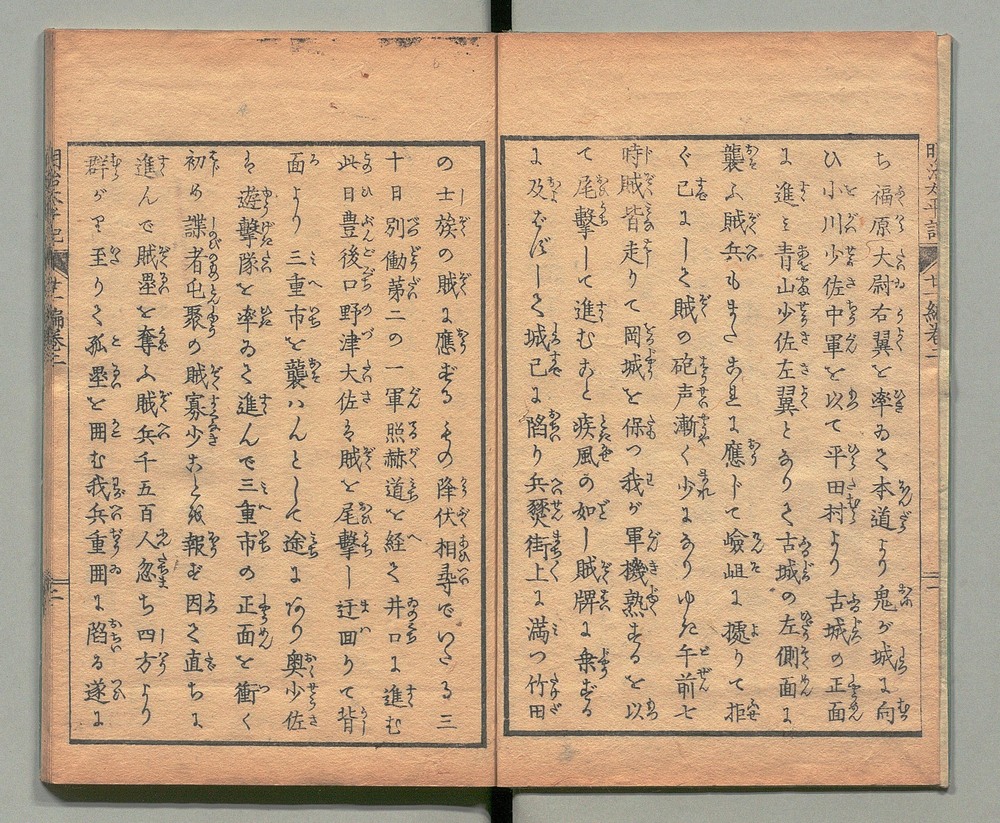 明治太平記 廿一編巻二
ち福原大尉右翼を率ゐて本道より鬼が城に向
ひ小川少佐中軍を以て平田村より古城の正面
に進ミ青山少佐左翼となりて古城の左側面に
襲ふ賊兵もまたこれに應じて嶮岨に據りて拒
ぐ已にして賊の砲声漸く少なりゆた午前七
時賊皆走りて岡城を保つ我が軍機熟するを以
て尾撃して進むこと疾風の如し賊牌に乗ずる
に及ばずして城已に陷り兵燹街上に満つ竹田
の士族の賊に應ずるもの降伏相尋でいたる三
十日別働第二の一軍照赫道を経て井口に進む
此日豊後口野津大佐ハ賊を尾撃し迂回りて背
面より三重市を襲ハんとして途にあり奥少佐
ハ遊撃隊を率ゐて進んで三重市の正面を衝く
初め諜者屯聚の賊寡少ことを報ず因て直ちに
進んで賊壘を奪ふ賊兵千五百人忽ち四方より
群がり至りて孤壘を囲む我兵重囲に陷る遂に
明治太平記 廿一編巻二
二